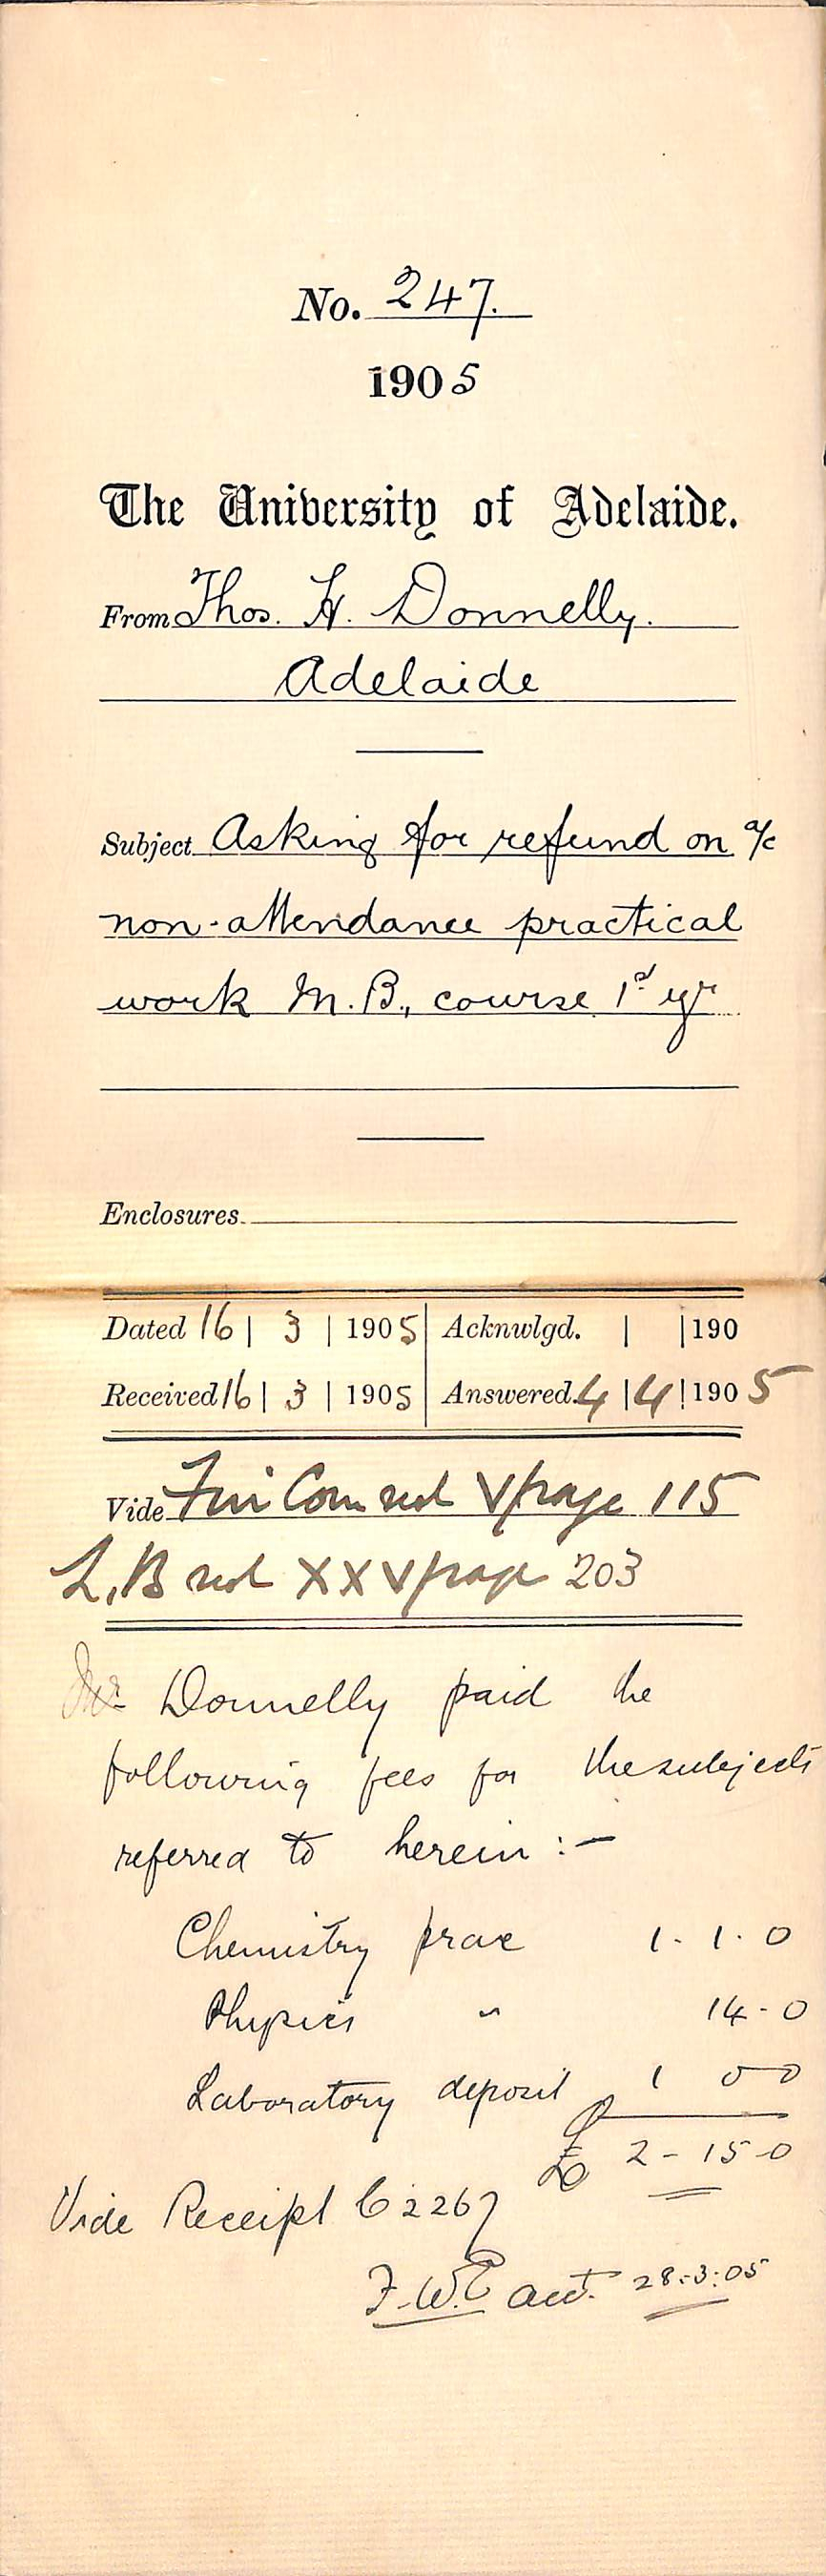 No. 247.
1905
The University of Adelaide.
From Thos. H. Donnelly.
Adelaide
Subject Asking for refund on a/c
non-attendance practical
work M.B., course 1st yr
Enclosures
Dated 16 | 3 | 1905 | Acknwlgd. | | 190
Received 16 | 3 | 1905 | Answered. 4 | 4 | 1905
Vide Fin Com vol V page 115
L.B vol XXV page 203
Mr Donnelly paid the
following fees for the subjects
referred to herein :-
Chemistry prac 1. 1. 0
Physics " 14-0
Laboratory deposit 1 0 0
£ 2-15-0
Vide Receipt C2267
F.W.E acct. 28.3.05